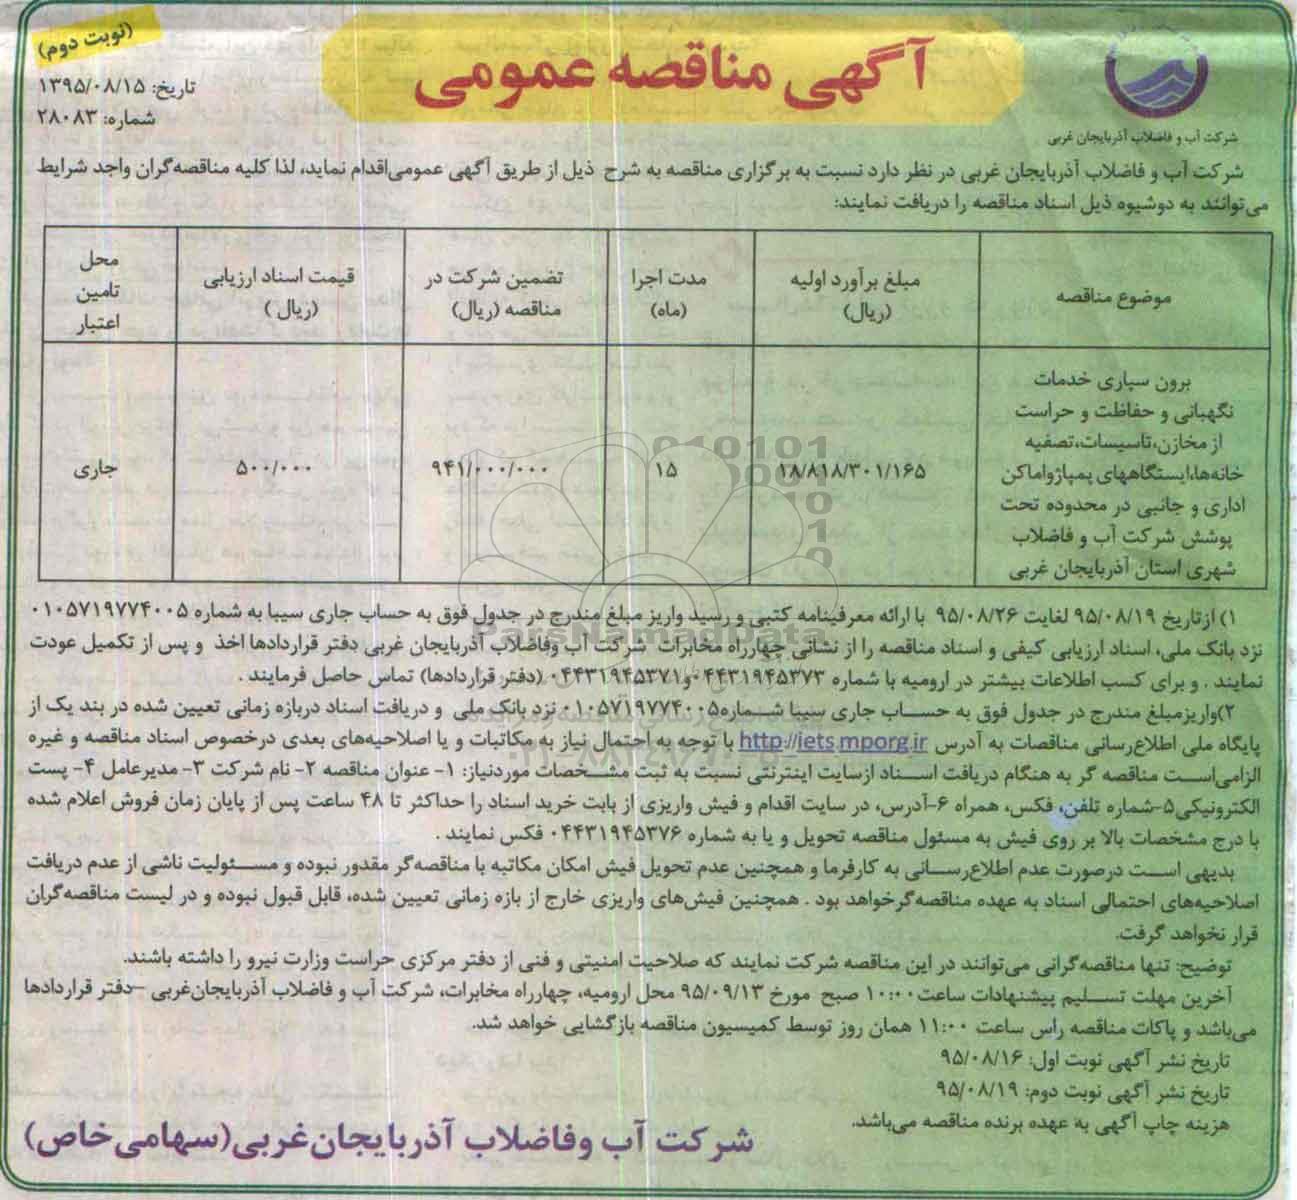 (نوبت دوم)
آگهی مناقصه عمومی
تاریخ: ۱۳۹۵/۰۸/۱۵
شماره: ۲۸۰۸۳
شرکت آب و فاضلاب آذربایجان غربی
شرکت آب و فاضلاب آذربایجان غربی در نظر دارد نسبت به برگزاری مناقصه به شرح ذیل از طریق آگهی عمومی‌اقدام نماید، لذا کلیه مناقصه‌گران واجد شرایط
می‌توانند به دوشیوه ذیل اسناد مناقصه را دریافت نمایند:
موضوع مناقصه
مبلغ برآورد اولیه
(ریال)
مدت اجرا
(ماه)
تضمین شرکت در
مناقصه (ریال)
قیمت اسناد ارزیابی
(ریال )
محل
تامین
اعتبار
برون سپاری خدمات
نگهبانی و حفاظت و حراست
از مخازن،تاسیسات،تصفیه
خانه‌ها،ایستگاههای پمپاژواماکن
اداری و جانبی در محدوده تحت
پوشش شرکت آب و فاضلاب
شهری استان آذربایجان غربی
۱۸/۸۱۸/۳۰۱/۱۶۵
۱۵
۹۴۱/۰۰۰/۰۰۰
۵۰۰/۰۰۰
جاری
ParsNamadData
۱) ازتاریخ ۹۵/۰۸/۱۹ لغایت ۹۵/۰۸/۲۶ با ارائه معرفینامه کتبی و رسید واریز مبلغ مندرج در جدول فوق به حساب جاری سیبا به شماره ۰۱۰۵۷۱۹۷۷۴۰۰۵
نزد بانک ملی، اسناد ارزیابی کیفی و اسناد مناقصه را از نشانی چهارراه مخابرات شرکت آب وفاضلاب آذربایجان غربی دفتر قراردادها اخذ و پس از تکمیل عودت
نمایند . و برای کسب اطلاعات بیشتر در ارومیه با شماره ۰۴۴۳۱۹۴۵۳۷۳و۰۴۴۳۱۹۴۵۳۷۱ (دفتر قراردادها) تماس حاصل فرمایند .
۲)واریزمبلغ مندرج در جدول فوق به حساب جاری سیبا شماره۰۱۰۵۷۱۹۷۷۴۰۰۵ نزد بانک ملی و دریافت اسناد دربازه زمانی تعیین شده در بند یک از
پایگاه ملی اطلاع‌رسانی مناقصات به آدرس http://iets.mporg.ir با توجه به احتمال نیاز به مکاتبات و یا اصلاحیه‌های بعدی درخصوص اسناد مناقصه و غیره
الزامی‌است مناقصه گر به هنگام دریافت اسناد ازسایت اینترنتی نسبت به ثبت مشخصات موردنیاز: ۱- عنوان مناقصه ۲- نام شرکت ۳- مدیرعامل ۴- پست
الکترونیکی۵-شماره تلفن، فکس، همراه ۶-آدرس، در سایت اقدام و فیش واریزی از بابت خرید اسناد را حداکثر تا ۴۸ ساعت پس از پایان زمان فروش اعلام شده
با درج مشخصات بالا بر روی فیش به مسئول مناقصه تحویل و یا به شماره ۰۴۴۳۱۹۴۵۳۷۶ فکس نمایند .
بدیهی است درصورت عدم اطلاع‌رسانی به کارفرما و همچنین عدم تحویل فیش امکان مکاتبه با مناقصه‌گر مقدور نبوده و مسئولیت ناشی از عدم دریافت
اصلاحیه‌های احتمالی اسناد به عهده مناقصه‌گرخواهد بود . همچنین فیش‌های واریزی خارج از بازه زمانی تعیین شده، قابل قبول نبوده و در لیست مناقصه‌گران
قرار نخواهد گرفت.
توضیح: تنها مناقصه‌گرانی می‌توانند در این مناقصه شرکت نمایند که صلاحیت امنیتی و فنی از دفتر مرکزی حراست وزارت نیرو را داشته باشند.
آخرین مهلت تسلیم پیشنهادات ساعت۱۰:۰۰ صبح مورخ ۹۵/۰۹/۱۳ محل ارومیه، چهارراه مخابرات، شرکت آب و فاضلاب آذربایجان‌غربی –دفتر قراردادها
می‌باشد و پاکات مناقصه راس ساعت ۱۱:۰۰ همان روز توسط کمیسیون مناقصه بازگشایی خواهد شد.
تاریخ نشر آگهی نوبت اول: ۹۵/۰۸/۱۶
تاریخ نشر آگهی نوبت دوم: ۹۵/۰۸/۱۹
هزینه چاپ آگهی به عهده برنده مناقصه می‌باشد.
شرکت آب وفاضلاب آذربایجان‌غربی(سهامی‌خاص)